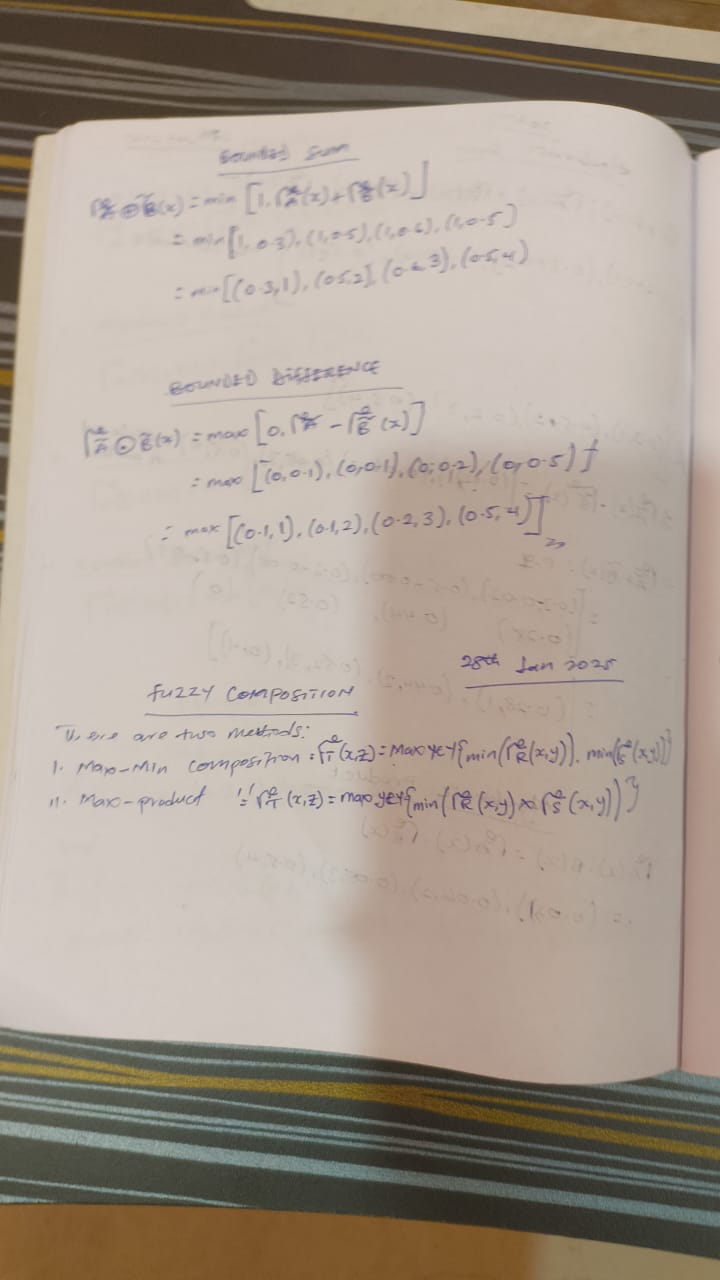 Bounded Sum
μÃ⊕B̃(x) = min [1, μÃ(x) + μB̃(x)]
= min[1, 0.3), (1, 0.5), (1, 0.6), (1, 0.5)
= min[(0.3, 1), (0.5, 2], (0.6, 3), (0.5, 4)
BOUNDED DIFFERENCE
μÃ⊙B̃(x) = max [0, μÃ - μB̃ (x)]
= max [(0, 0.1), (0, 0.1), (0, 0.2), (0, 0.5)]
= max [(0.1, 1), (0.1, 2), (0.2, 3), (0.5, 4)]
28th Jan 2025
FUZZY COMPOSITION
There are two methods:
1. Max-Min composition = μT̃ (x,z) = Max y∈Y{min(μR̃(x,y)), min(μS̃(x,y))}
11. Max-product '' = μT̃ (x,z) = max y∈Y{min(μR̃ (x,y) × μS̃ (x,y))}